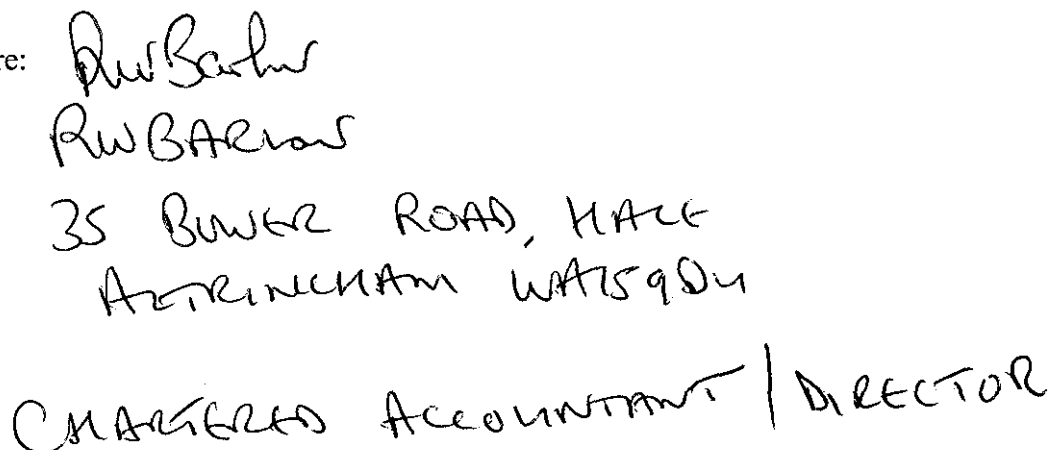 re: RW Barlow
RW BARLOW
35 BOWER ROAD, HALE
ALTRINCHAM WA15 9DU
CHARTERED ACCOUNTANT / DIRECTOR